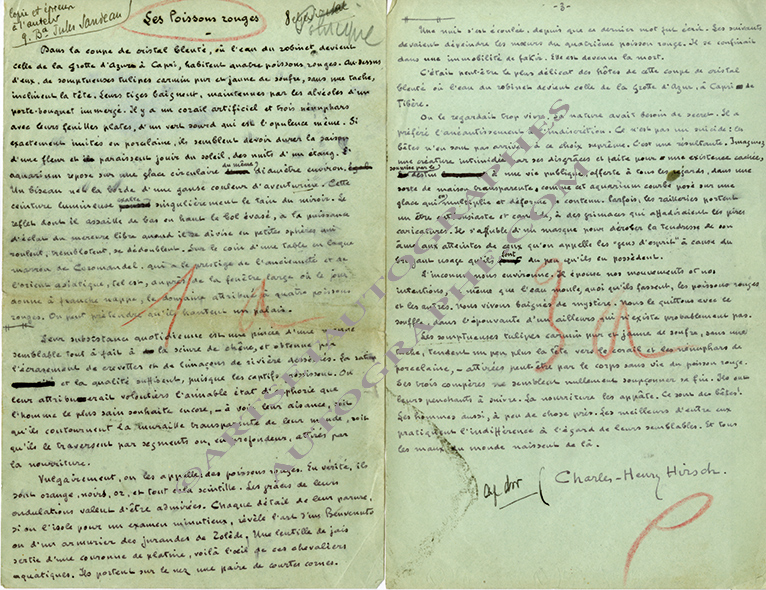 copie et épreuve
à l'auteur
9. Bd Jules Sandeau
Les Poissons rouges
Dans la coupe de cristal bleuté, où l'eau du robinet devient
celle de la Grotte d'Azur à Capri, habitent quatre poissons rouges. Au-dessus
d'eux, de somptueuses tulipes carmin pur et jaune de soufre, sans une tache,
inclinent la tête. Leurs tiges baignent, maintenues par les alvéoles d'un
porte-bouquet immergé. Il y a un corail artificiel et trois nénuphars
avec leurs feuilles plates, d'un vert sourd qui est l'opulence même. Si
exactement imités en porcelaine, ils semblent devoir durer la saison
d'une fleur et paraissent jouir du soleil, des nuits d'un étang. L'
aquarium repose sur une glace circulaire de même diamètre environ.
Un biseau le borde d'une ganse couleur d'aventurine. Cette
ceinture lumineuse exalte singulièrement le tain du miroir. Le
reflet dont il assaille de bas en haut le bol évasé, a la puissance
d'éclat du mercure libre quand il se divise en petites sphères qui
roulent, tremblotent, se dédoublent. Sur le coin d'une table en laque
marron de Coromandel, qui a le prestige de l'ancienneté et de
l'exotisme asiatique, tel est, auprès de la fenêtre large où le jour
donne à franche nappe, le domaine attribué à quatre poissons
rouges. On peut prétendre qu'ils habitent un palais.
Leur substance quotidienne est une pincée d'une
semblable tout à fait à la sciure de chêne, et obtenue par
l'écrasement de crevettes et de limaçons de rivière desséchés. La ration
et la qualité suffisent, puisque les captifs grossissent. On
leur attribuerait volontiers l'aimable état d'euphorie que
l'homme le plus sain souhaite encore, — à voir leur aisance, soit
qu'ils contournent la muraille transparente de leur monde, soit
qu'ils le traversent par segments ou, en profondeur, attirés par
la nourriture.
Vulgairement, on les appelle des poissons rouges. En vérité, ils
sont orange, noirs, or, et tout cela scintille. Les grâces de leurs
ondulations valent d'être admirées. Chaque détail de leur parure,
si on l'isole pour un examen minutieux, révèle l'art d'un Benvenuto
ou d'un armurier des jurandes de Tolède. Une lentille de jais
sertie d'une couronne de platine, voilà l'œil de ces chevaliers
aquatiques. Ils portent sur le nez une paire de courtes cornes.
-3-
Une nuit s'est écoulée, depuis que ce dernier mot fut écrit. Les suivants
devaient dépeindre les mœurs du quatrième poisson rouge. Il se confinait
dans une immobilité de fakir. Elle est devenue la mort.
C'était peut-être le plus délicat des hôtes de cette coupe de cristal
bleuté où l'eau du robinet devient celle de la Grotte d'Azur, à Capri de
Tibère.
On le regardait trop vivre. Sa nature avait besoin de secret. Il a
préféré l'anéantissement à l'indiscrétion. Ce n'est pas un suicide: les
bêtes n'en sont pas arrivées à ce choix suprême. C'est une résultante. Imaginez
une créature intimidée par ses disgrâces et faite pour une existence cachée,
à une vie publique, offerte à tous les regards, dans une
sorte de maison transparente, comme cet aquarium courbe posé sur une
glace qui multiplie et déforme le contenu. Parfois, les railleries portent
un être enthousiaste et candide, à des grimaces qui affadiraient les pires
caricatures. Il s'affuble d'un masque pour dérober la tendresse de son
âme aux atteintes de ceux qu'on appelle les "gens d'esprit" à cause du
bruyant usage qu'ils font du peu qu'ils en possèdent.
L'inconnu nous environne. Il épouse nos mouvements et nos
intentions, de même que l'eau moule, quoi qu'ils fassent, les poissons rouges
et les autres. Nous vivons baignés de mystère. Nous le quittons avec le
souffle, dans l'épouvante d'un ailleurs qui n'existe probablement pas.
Les somptueuses tulipes carmin pur et jaune de soufre, sans une
tache, tendent un peu plus la tête vers le corail et les nénuphars de
porcelaine, — attirées peut-être par le corps sans vie du poisson rouge.
Ses trois compères ne semblent nullement soupçonner sa fin. Ils ont
leurs penchants à suivre. La nourriture les appâte. Ce sont des bêtes!
Les hommes aussi, à peu de chose près. Les meilleurs d'entre eux
pratiquent l'indifférence à l'égard de leurs semblables. Et tous
les maux du monde naissent de là.
Charles-Henry Hirsch.
©ARTSETAUTOGRAPHES
AUTOGRAPHE.COM